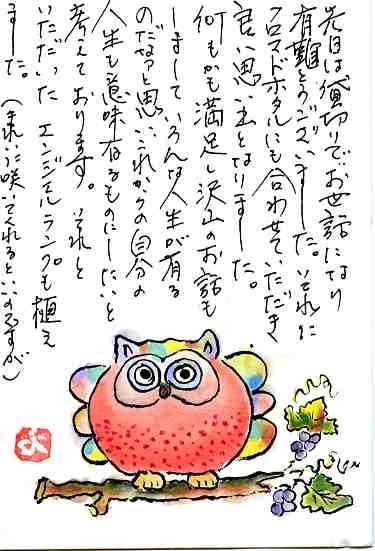 先日は貸切りで、お世話になり
有難とうございました。それに
クロマドホタルにも合わせていただき
良い思い出となりました。
何もかも満足し沢山のお話も
しましていろんな人生が有る
のだなァと思い、これからの自分の
人生も意味有るものにしたいと
考えております。それと
いただいた エンジェルランプも植え
ました。(きれいに咲いてくれるといいのですが)